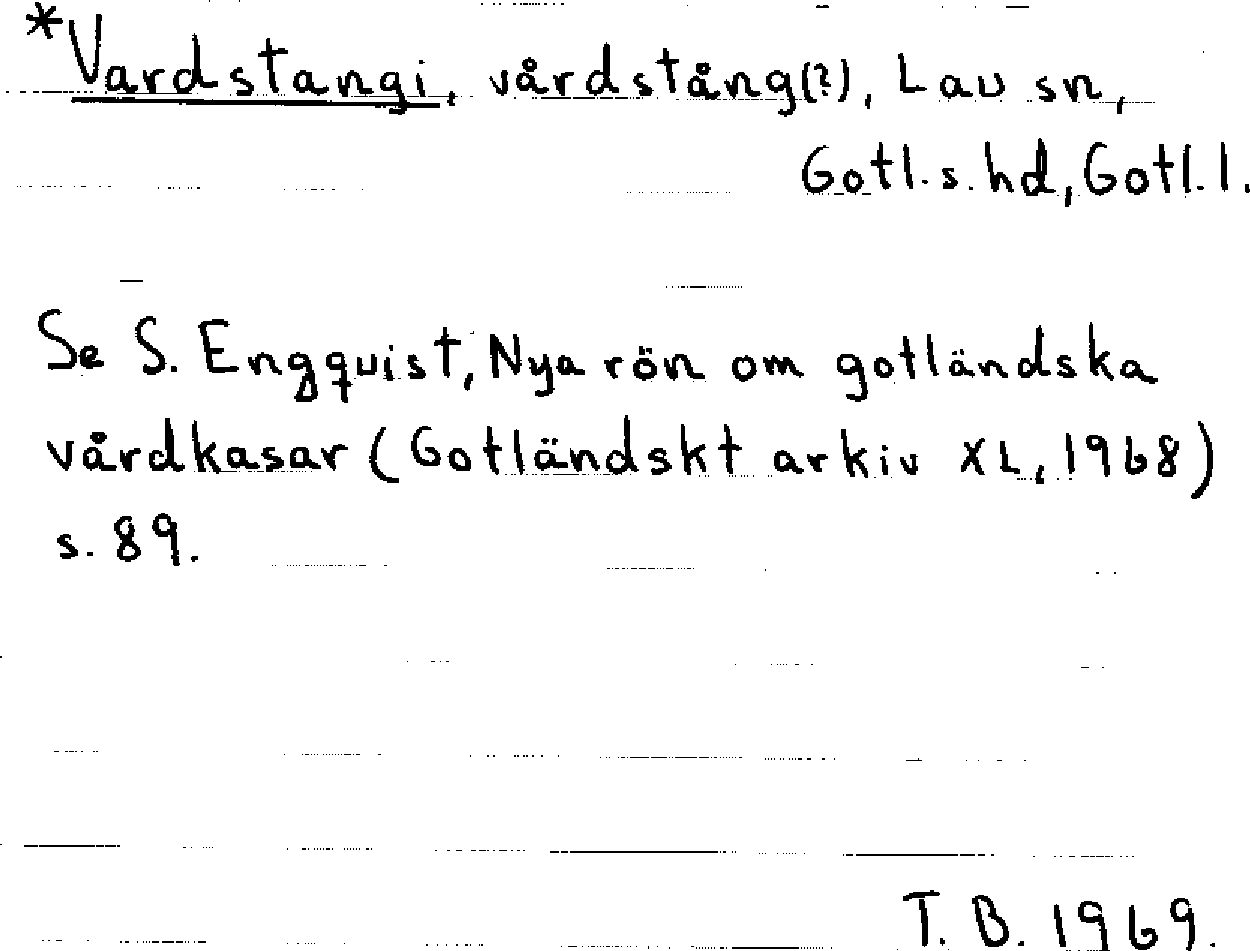 *Vardstangi, vårdstång(?), Lau sn,
Gotl.s.hd, Gotl.l.
Se S. Engquist, Nya rön om gotländska
vårdkasar (Gotländskt arkiv XL, 1968)
s. 89.
T. B. 1969.